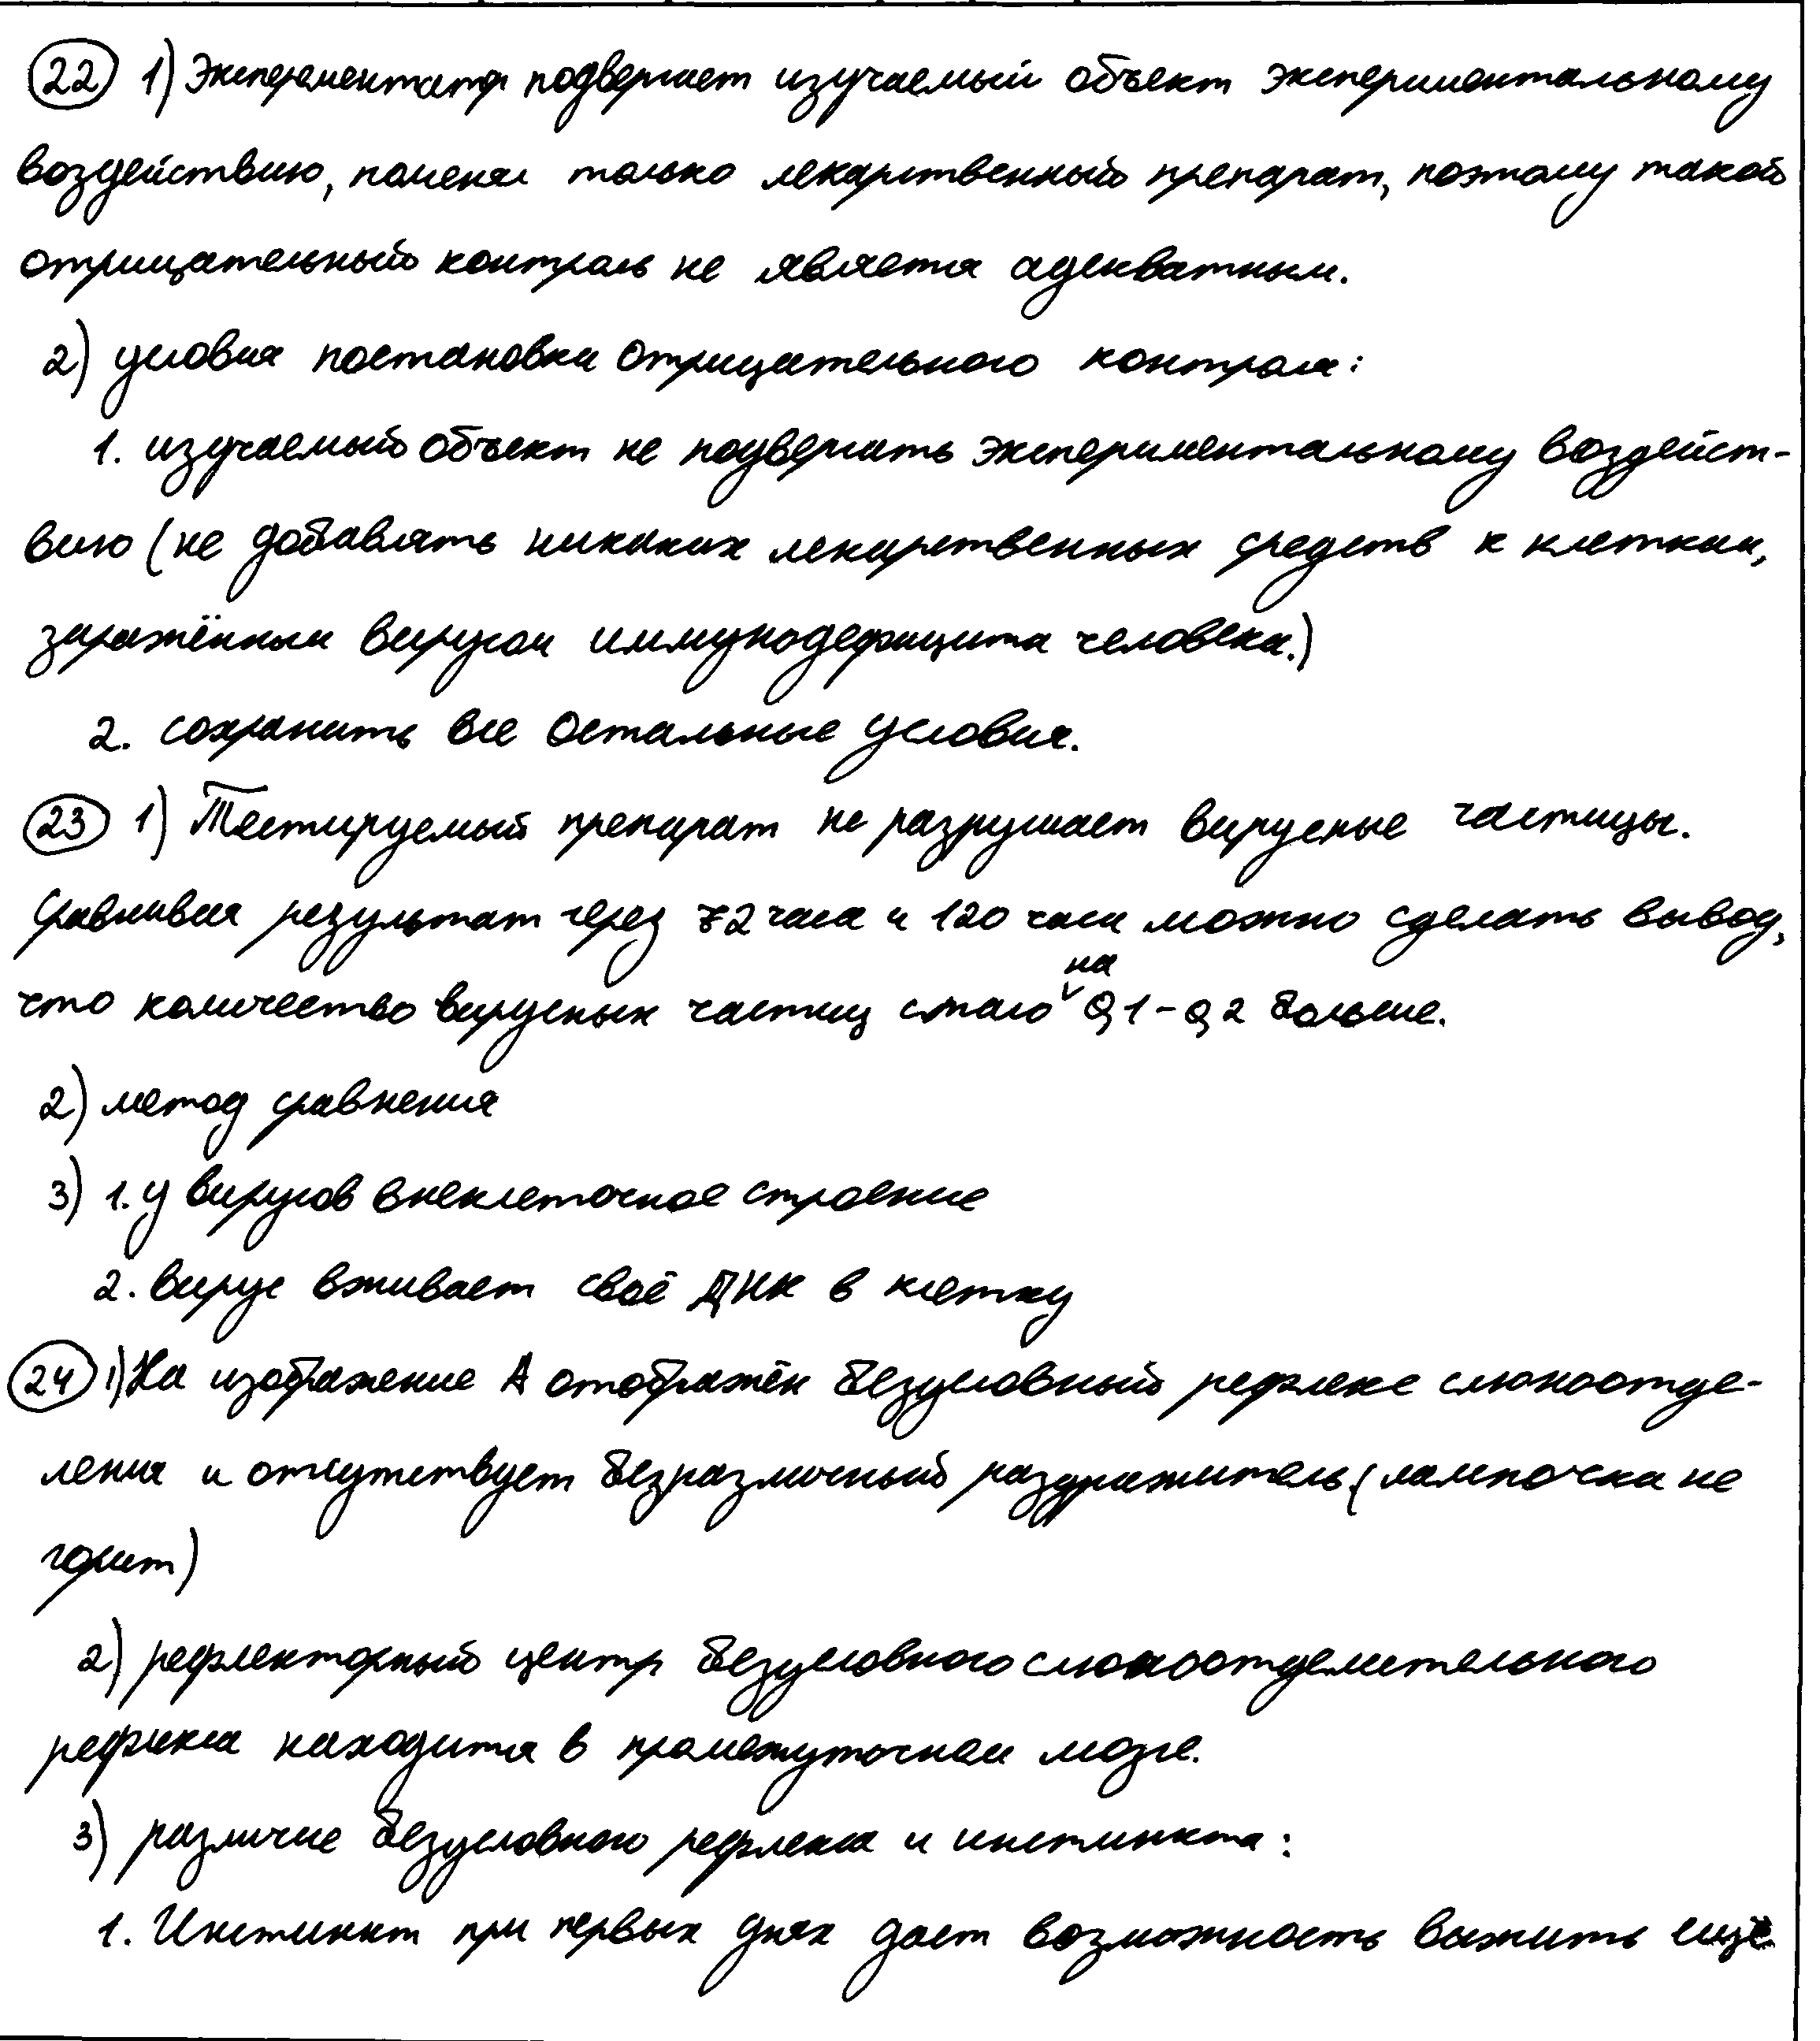 22 1) Эксперементатор подвергает изучаемый объект экспериментальному
воздействию, поменял только лекарственный препарат, поэтому такой
отрицательный контроль не является адекватным.
2) условия постановки отрицательного контроля:
1. изучаемый объект не подвергать экспериментальному воздейст-
вию (не добавлять никаких лекарственных средств к клеткам,
заражённым вирусом иммунодефицита человека.)
2. сохранить все остальные условия.
23 1) Тестируемый препарат не разрушает вирусные частицы.
Сравнивая результат через 72 часа и 120 часа можно сделать вывод,
что количество вирусных частиц стало на 0,1-0,2 больше.
2) метод сравнения
3) 1. у вирусов внеклеточное строение
2. вирус вживает своё ДНК в клетку
24 1) На изображение А отображён безусловный рефлекс слюноотде-
ления и отсутствует безразличный раздражитель (лампочка не
горит)
2) рефлекторный центр безусловного слюноотделительного
рефлекса находится в промежуточном мозге.
3) различие безусловного рефлекса и инстинкта:
1. Инстинкт при первых днях дает возможность выжить ещё